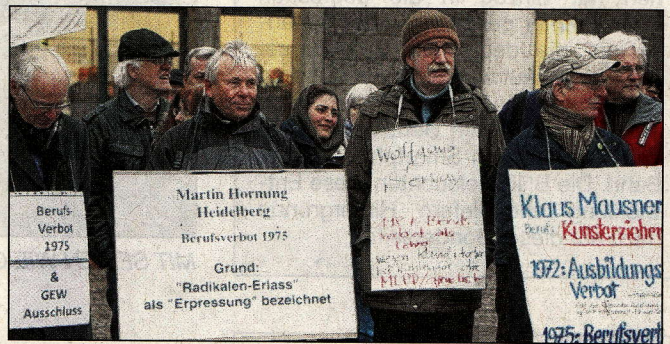 Berufs-
Verbot
1975
&
GEW
Ausschluss
Martin Hornung
Heidelberg
Berufsverbot 1975
Grund:
"Radikalen-Erlass"
als "Erpressung" bezeichnet
Wolfgang
verbot als
Lehrer
wegen
Klaus Mausner
Beruf: Kunsterzieher
1972: Ausbildungs
Verbot
1975: Berufsverb